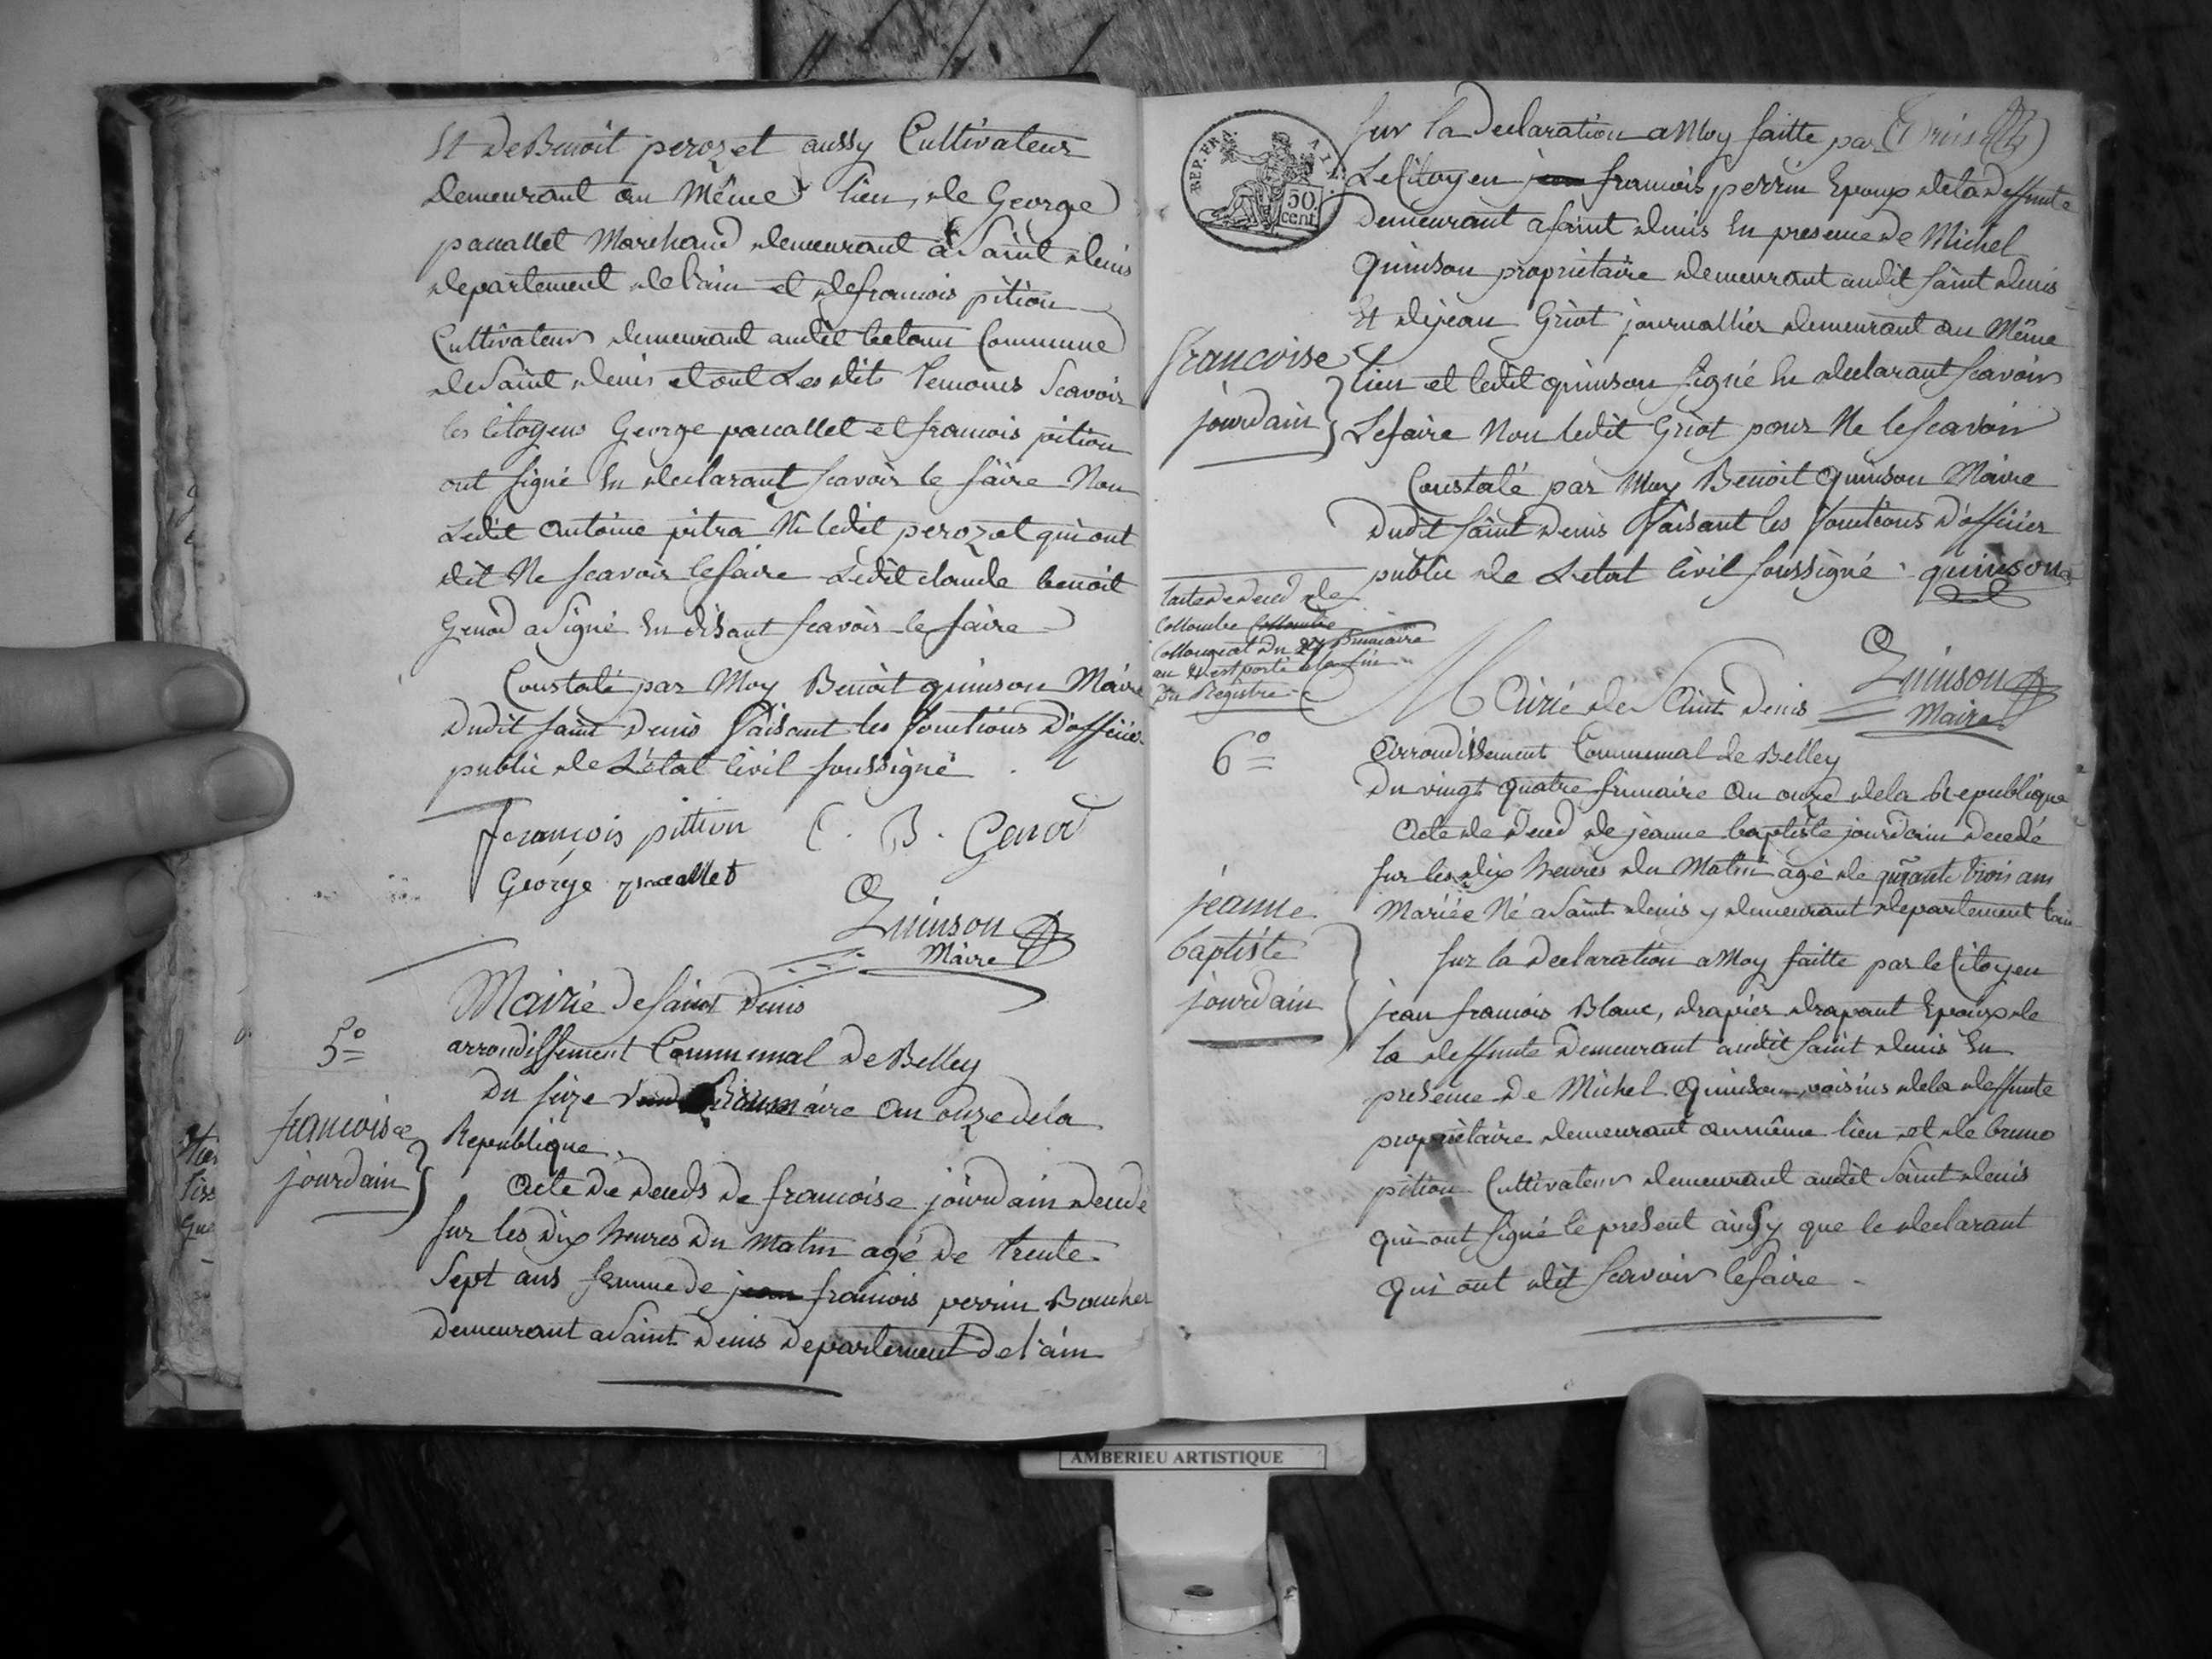 Et De Benoit perozet aussy Cultivateur
demeurant au Même lieu, de George
pacallet Marchand demeurant à Saint denis
departement de lain et de francois pition
Cultivateur demeurant audit Commune
de Saint denis et ont Les dits temoins Scavoir
les Citoyens George pacallet et francois pition
ont signé En declarant scavoir le faire Non
Ledit antoine pitra Ni ledit perozet qui ont
dit Ne scavoir lefaire Ledit claude benoit
Genod a Signé En disant scavoir le faire
Constaté par Moy Benoit quinson Maire
Dudit saint Denis faisant les fonctions D'officier
public de L'état Civil soussigné
françois pittion C. B. Genod
George pacallet
Quinson
Maire
5o
Mairie de saint Denis
arrondissement Communal de Belley
Du seize Brumaire an onze dela
Republique
francoise
jourdain
Acte de deceds de francoise jourdain decedé
sur les dix heures du matin agé de trente
Sept ans femme de jean francois perrin Boucher
demeurant a Saint Denis departement de l'ain
REP. FRA.
50
cent
sur la Declaration a Moy faitte par
Le Citoyen jean francois perrin Epoux dela deffunte
Demeurant a saint denis En presence de Michel
Quinson proprietaire demeurant audit saint denis
Et de jean Griot journallier demeurant au Même
francoise
jourdain
lieu et ledit quinson signé En declarant scavoir
Lefaire Non ledit Griot pour Ne le scavoir
Constaté par Moy Benoit Quinson Maire
Dudit saint Denis faisant les fonctions D'officier
public de L'etat Civil soussigné quinson
lacte de deced de
Collombe Collombe
du 27 Brumaire
an est porté a la fin
Du Registre
Quinson
Maire
Mairie de Saint Denis
6o
arrondissement Communal de Belley
Du vingt quatre frimaire an onze dela Republique
Acte de Deced de jeanne baptiste jourdain decedé
sur les dix heures du Matin agé de qurante trois ans
Mariée Né a Saint denis y demeurant departement lain
jeanne
baptiste
jourdain
sur la declaration a Moy faitte par le Citoyen
jean francois Blanc, drapier drapant Epoux de
la deffunte Demeurant audit saint denis En
presence de Michel Quinson, voisins dela deffunte
proprietaire demeurant aumême lieu et de bruno
pition Cultivateur demeurant audit Saint denis
qui ont signé le present aussy que le declarant
Qui ont dit scavoir lefaire
AMBERIEU ARTISTIQUE